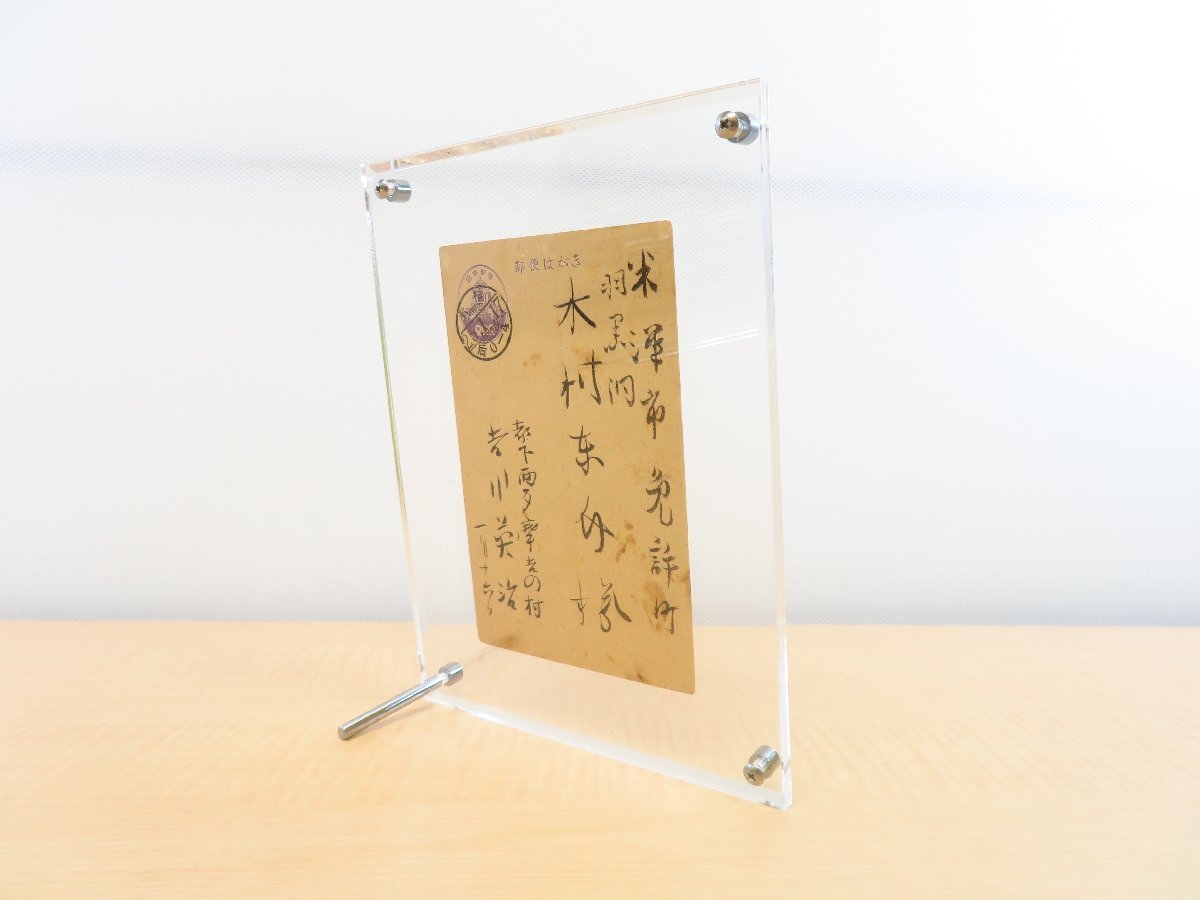 郵便はがき
米澤市免許町
羽黒洞
木村東介様
都下西多摩吉の村
吉川英治
一月十六日